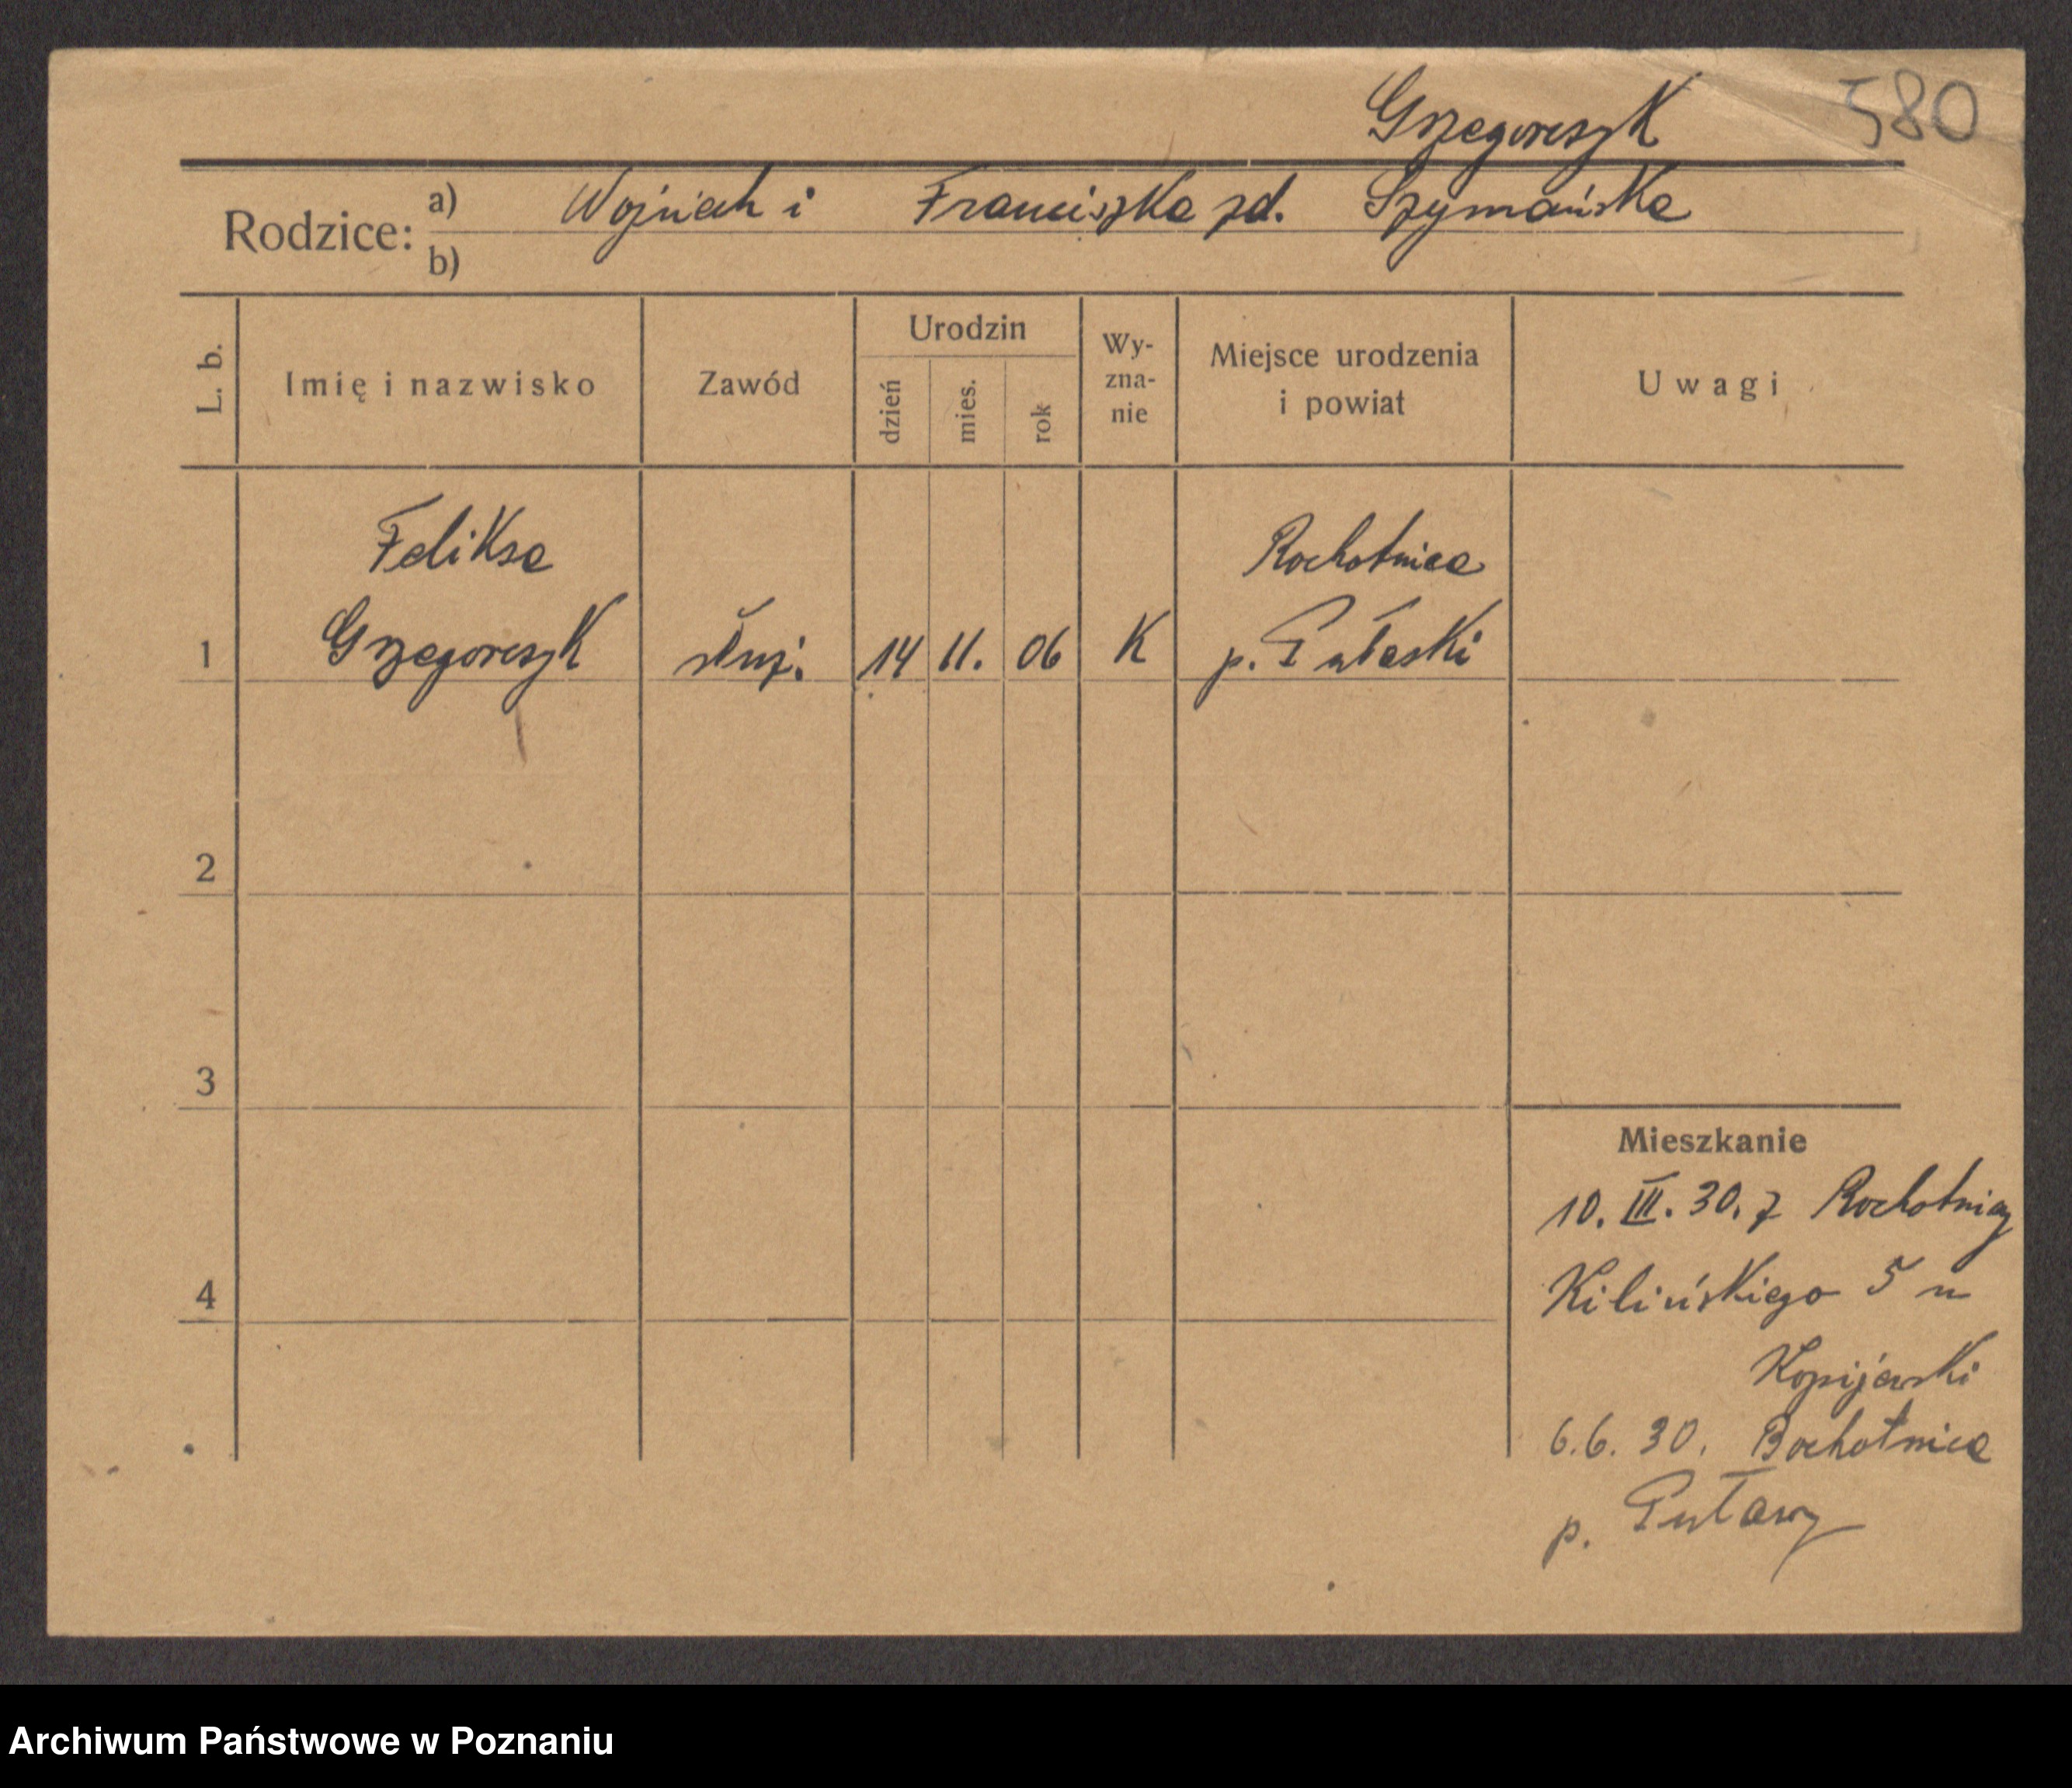 Grzegorczyk 580
Rodzice: a) Wojciech i Franciszka zd. Szymańska
b)
L. b. Imię i nazwisko Zawód Urodzin dzień mies. rok Wy-zna-nie Miejsce urodzenia i powiat Uwagi
Feliksa Rochotnica
1 Grzegorczyk służ. 14 11. 06 K p. Puławski
2
3
Mieszkanie
10. III. 30. z Rochotnicy
4 Kilińskiego 5 u
Kopijewski
6.6. 30. Bochotnica
p. Puławy
Archiwum Państwowe w Poznaniu